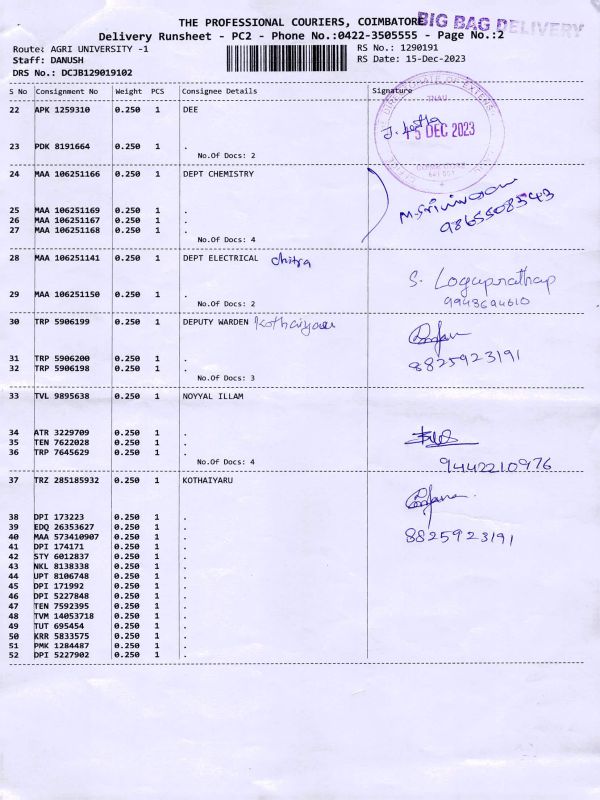 THE PROFESSIONAL COURIERS, COIMBATORE
BIG BAG DELIVERY
Delivery Runsheet - PC2 - Phone No.:0422-3505555 - Page No.:2
Route: AGRI UNIVERSITY -1
RS No.: 1290191
Staff: DANUSH
RS Date: 15-Dec-2023
DRS No.: DCJB129019102
S No Consignment No Weight PCS Consignee Details Signature
22 APK 1259310 0.250 1 DEE
TNAU
15 DEC 2023
23 PDK 8191664 0.250 1 .
No.Of Docs: 2
24 MAA 106251166 0.250 1 DEPT CHEMISTRY
25 MAA 106251169 0.250 1 .
M. Srinivasan
26 MAA 106251167 0.250 1 .
9865508543
27 MAA 106251168 0.250 1 .
No.Of Docs: 4
28 MAA 106251141 0.250 1 DEPT ELECTRICAL chitra
S. Logaprathap
29 MAA 106251150 0.250 1 .
9943694610
No.Of Docs: 2
30 TRP 5906199 0.250 1 DEPUTY WARDEN
31 TRP 5906200 0.250 1 .
8825923191
32 TRP 5906198 0.250 1 .
No.Of Docs: 3
33 TVL 9895638 0.250 1 NOYYAL ILLAM
34 ATR 3229709 0.250 1 .
35 TEN 7622028 0.250 1 .
36 TRP 7645629 0.250 1 .
No.Of Docs: 4
9442210976
37 TRZ 285185932 0.250 1 KOTHAIYARU
38 DPI 173223 0.250 1 .
39 EDQ 26353627 0.250 1 .
40 MAA 573410907 0.250 1 .
8825923191
41 DPI 174171 0.250 1 .
42 STY 6012837 0.250 1 .
43 NKL 8138338 0.250 1 .
44 UPT 8106748 0.250 1 .
45 DPI 171992 0.250 1 .
46 DPI 5227848 0.250 1 .
47 TEN 7592395 0.250 1 .
48 TVM 14053718 0.250 1 .
49 TUT 695454 0.250 1 .
50 KRR 5833575 0.250 1 .
51 PMK 1284487 0.250 1 .
52 DPI 5227902 0.250 1 .